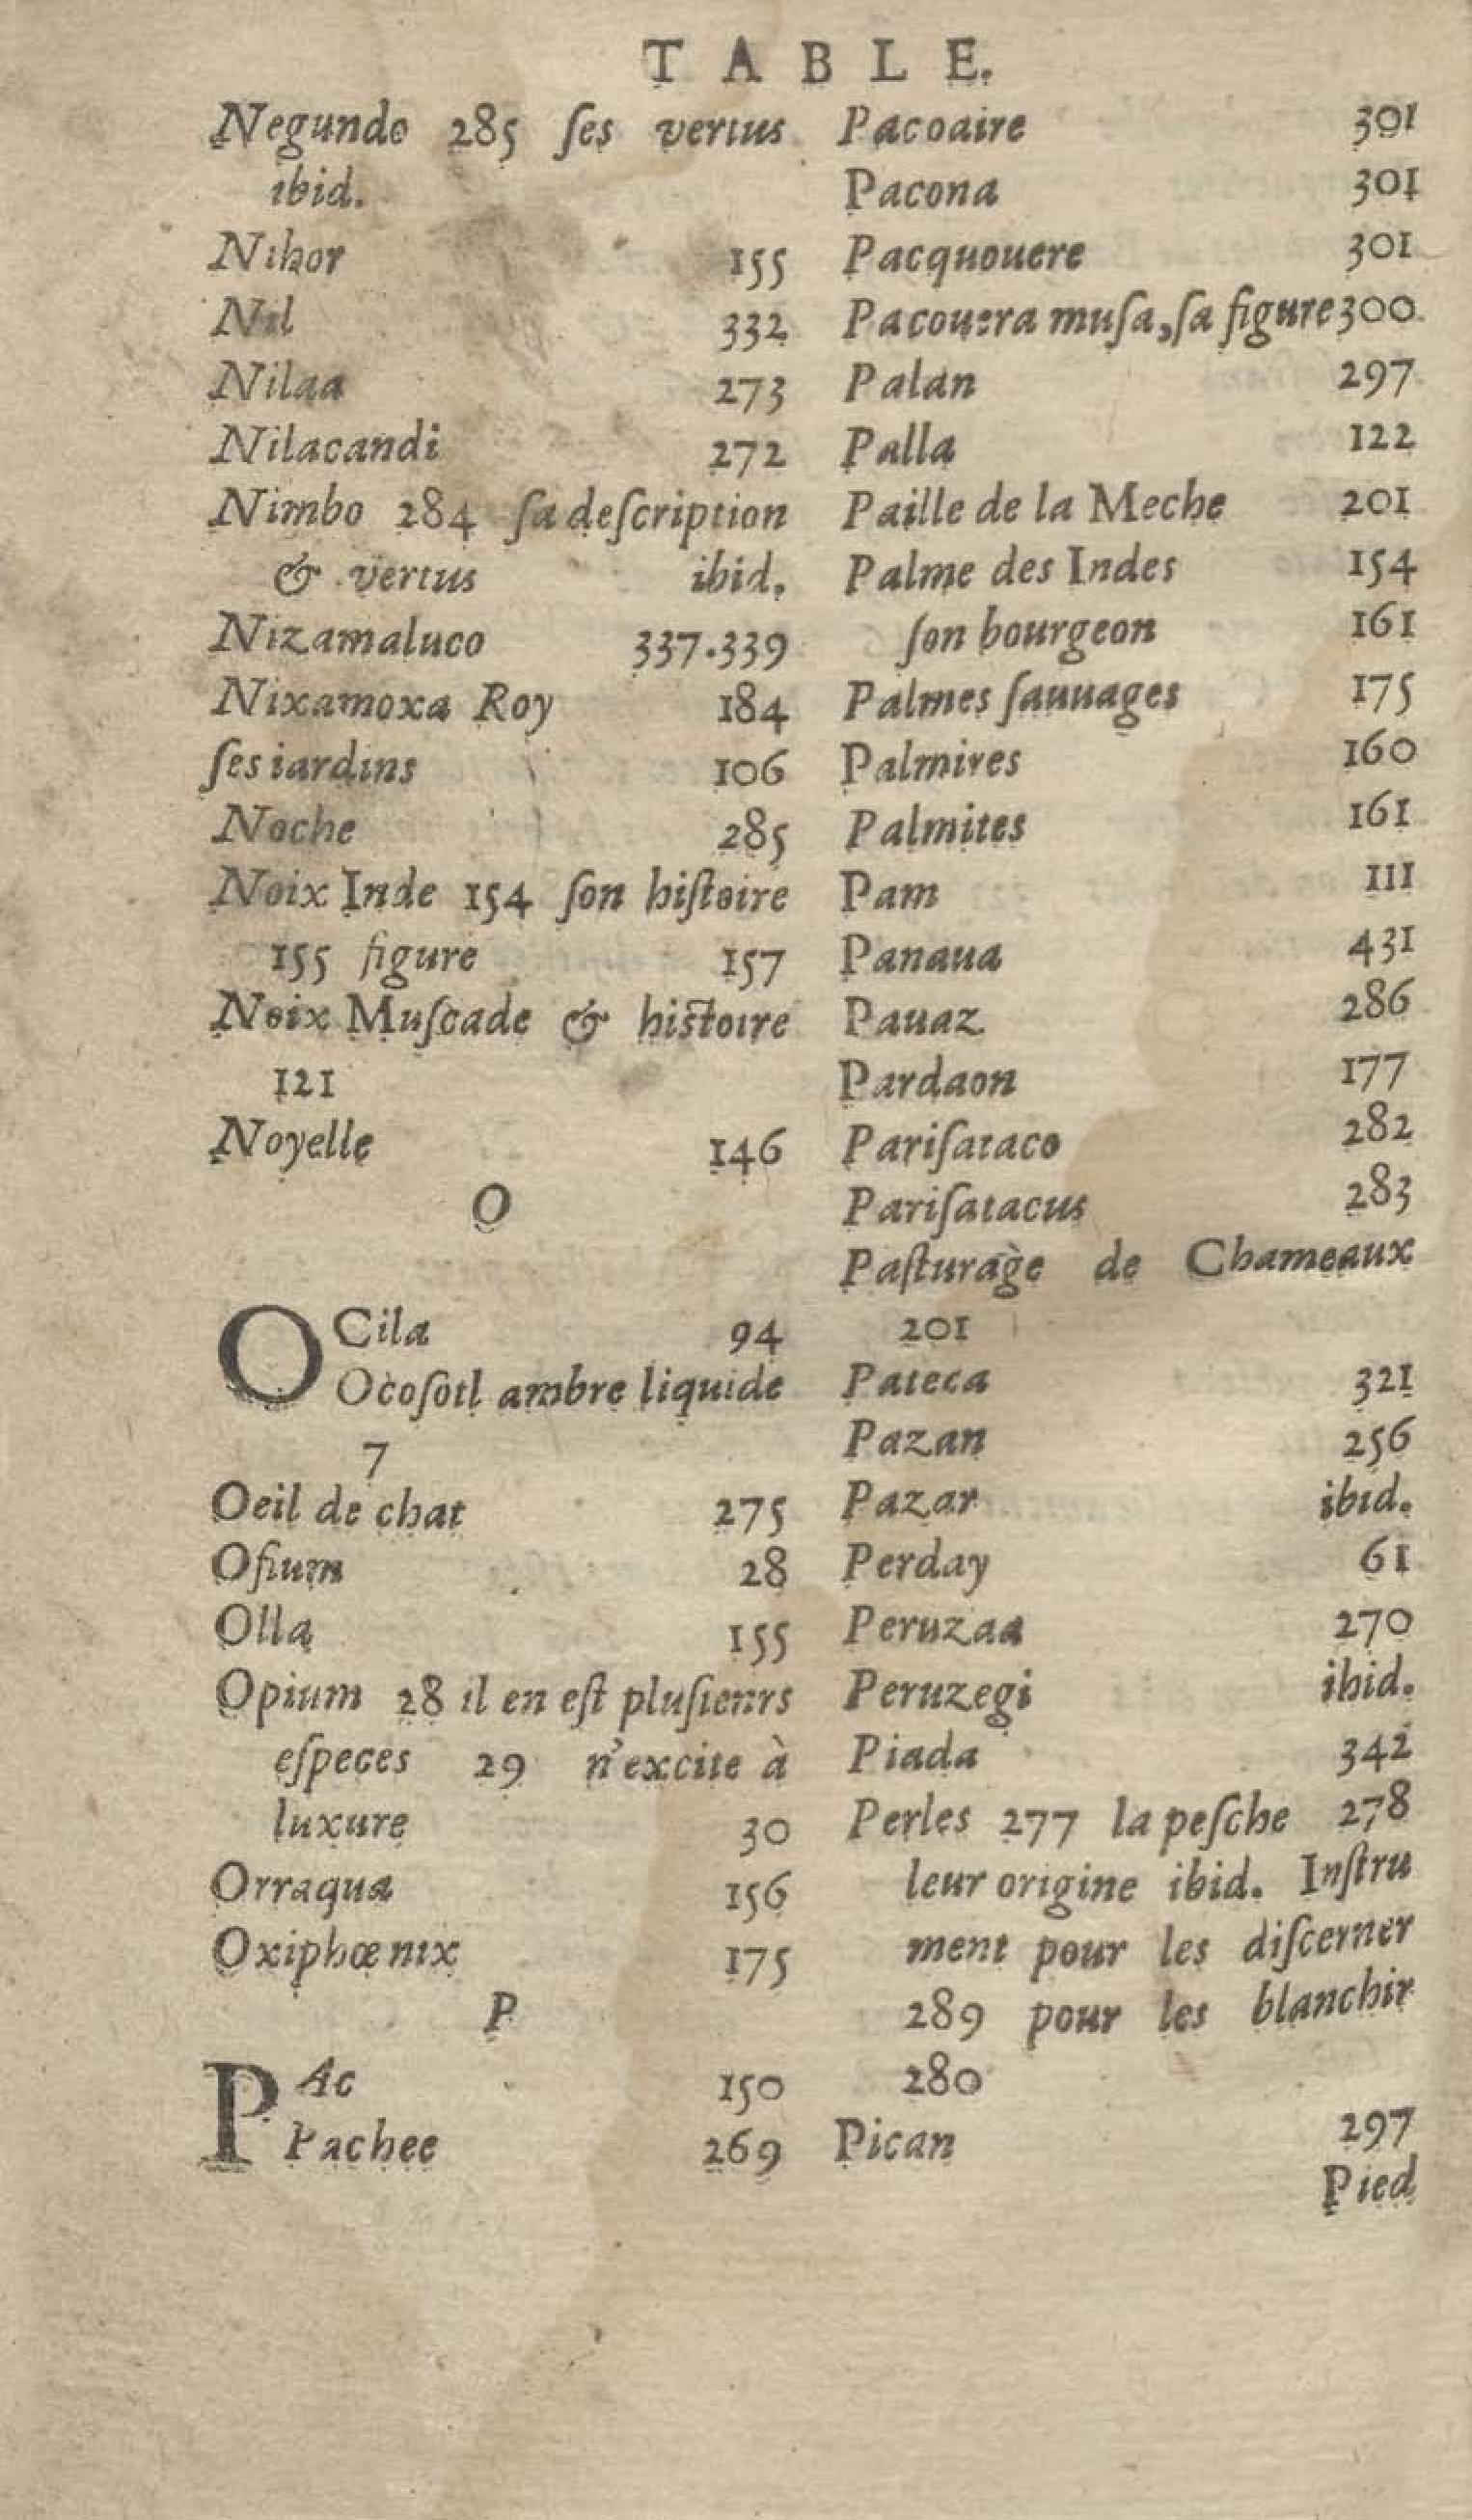 TABLE.
Negundo 285 ſes vertus
ibid.
Nihor 155
Nil 332
Nilaa 273
Nilacandi 272
Nimbo 284 ſa deſcription
& vertus ibid.
Nizamaluco 337.339
Nixamoxa Roy 184
ſes iardins 106
Noche 285
Noix Inde 154 ſon hiſtoire
155 figure 157
Noix Muſcade & hiſtoire
121
Noyelle 146
O
OCila 94
Ocoſotl ambre liquide
7
Oeil de chat 275
Ofium 28
Olla 155
Opium 28 il en eſt pluſienrs
eſpeces 29 n'excite à
luxure 30
Orraqua 156
Oxiphœnix 175
P
PAc 150
Pachee 269
Pacoaire 301
Pacona 301
Pacquouere 301
Pacouera muſa, ſa figure 300
Palan 297
Palla 122
Paille de la Meche 201
Palme des Indes 154
ſon bourgeon 161
Palmes ſauuages 175
Palmires 160
Palmites 161
Pam 111
Panaua 431
Pauaz 286
Pardaon 177
Pariſataco 282
Pariſatacus 283
Paſturage de Chameaux
201
Pateca 321
Pazan 256
Pazar ibid.
Perday 61
Peruzaa 270
Peruzegi ibid.
Piada 342
Perles 277 la peſche 278
leur origine ibid. Inſtru
ment pour les diſcerner
289 pour les blanchir
280
Pican 297
Pied